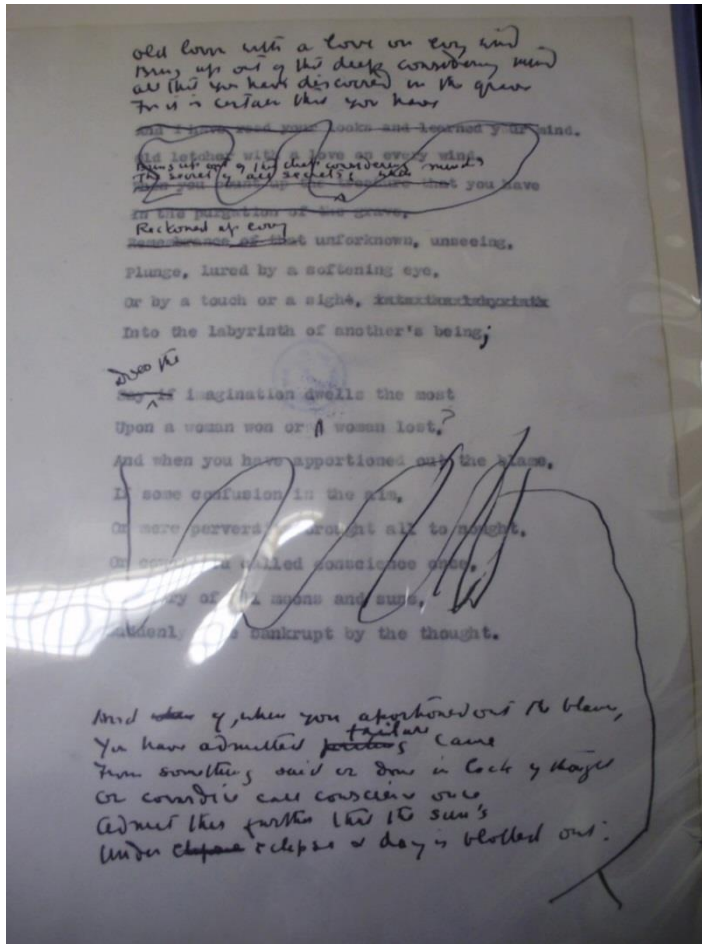 old lover with a love on every wind
Bring up out of that deep considering mind
all that you have discovered in the grave
For it is certain that you have
And I have read your looks and learned your mind.
Old letcher with a love on every wind,
Bring up out of that deep considering mind
The secret of all secrets,
When you count up the treasure that you have
In the purgation of the grave,
Reckoned up every
Remembrance of that unforknown, unseeing,
Plunge, lured by a softening eye,
Or by a touch or a sigh,
Into the labyrinth of another's being;
Does the
Say if imagination dwells the most
Upon a woman won or A woman lost,?
And when you have apportioned out the blame,
If some confusion in the aim,
Or mere perversity brought all to nought,
Or called conscience once,
of moons and suns,
Suddenly bankrupt by the thought.
And when if, when you apportioned out the blame,
failure
You have admitted came
From something said or done in lack of thought
Or cowardice call conscience once
Admit this further that the sun's
Under eclipse & day is blotted out: